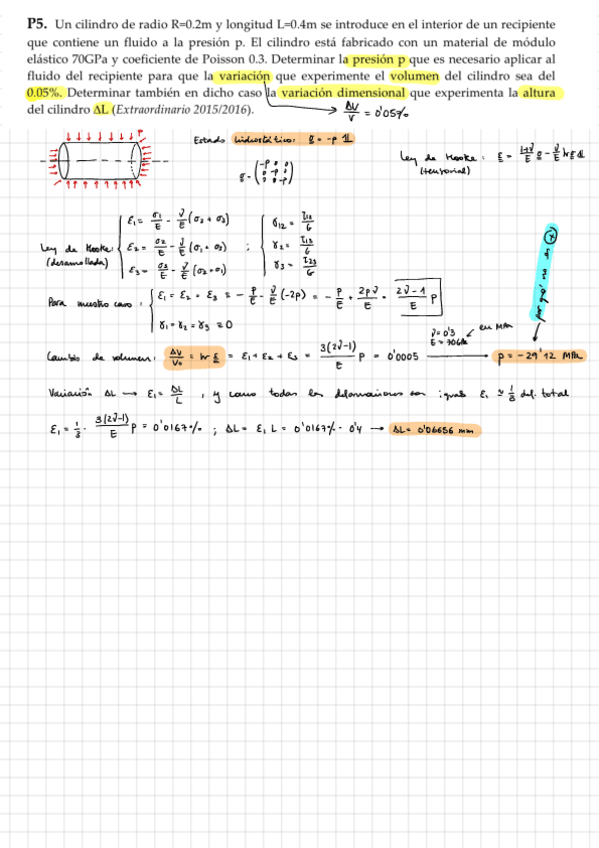 P5. Un cilindro de radio R=0.2m y longitud L=0.4m se introduce en el interior de un recipiente
que contiene un fluido a la presión p. El cilindro está fabricado con un material de módulo
elástico 70GPa y coeficiente de Poisson 0.3. Determinar la presión p que es necesario aplicar al
fluido del recipiente para que la variación que experimente el volumen del cilindro sea del
0.05%. Determinar también en dicho caso la variación dimensional que experimenta la altura
del cilindro ΔL (Extraordinario 2015/2016).
ΔV/V = 0'05%
P
Estado hidrostático: σ = -p 1
σ = (-p 0 0
0 -p 0
0 0 -p)
Ley de Hooke: ε = (1+ν)/E σ - ν/E tr σ 1
(tensorial)
Ley de Hooke:
(desarrollada)
ε1 = σ1/E - ν/E (σ2 + σ3)
ε2 = σ2/E - ν/E (σ1 + σ3)
ε3 = σ3/E - ν/E (σ2 + σ1)
;
γ12 = τ12/G
γ2 = τ13/G
γ3 = τ23/G
Para nuestro caso: ε1 = ε2 = ε3 = - p/E - ν/E (-2p) = - p/E + 2pν/E = (2ν-1)/E p
γ1 = γ2 = γ3 = 0
por qué no es (*)
Cambio de volumen: ΔV/V0 = tr ε = ε1 + ε2 + ε3 = 3(2ν-1)/E p = 0'0005
ν = 0'3
E = 70GPa
en MPa
p = -29'12 MPa
Variación ΔL → ε1 = ΔL/L , y como todas las deformaciones son iguales ε1 = 1/3 del total
ε1 = 1/3 · 3(2ν-1)/E p = 0'0167% ; ΔL = ε1 L = 0'0167% · 0'4 → ΔL = 0'06656 mm